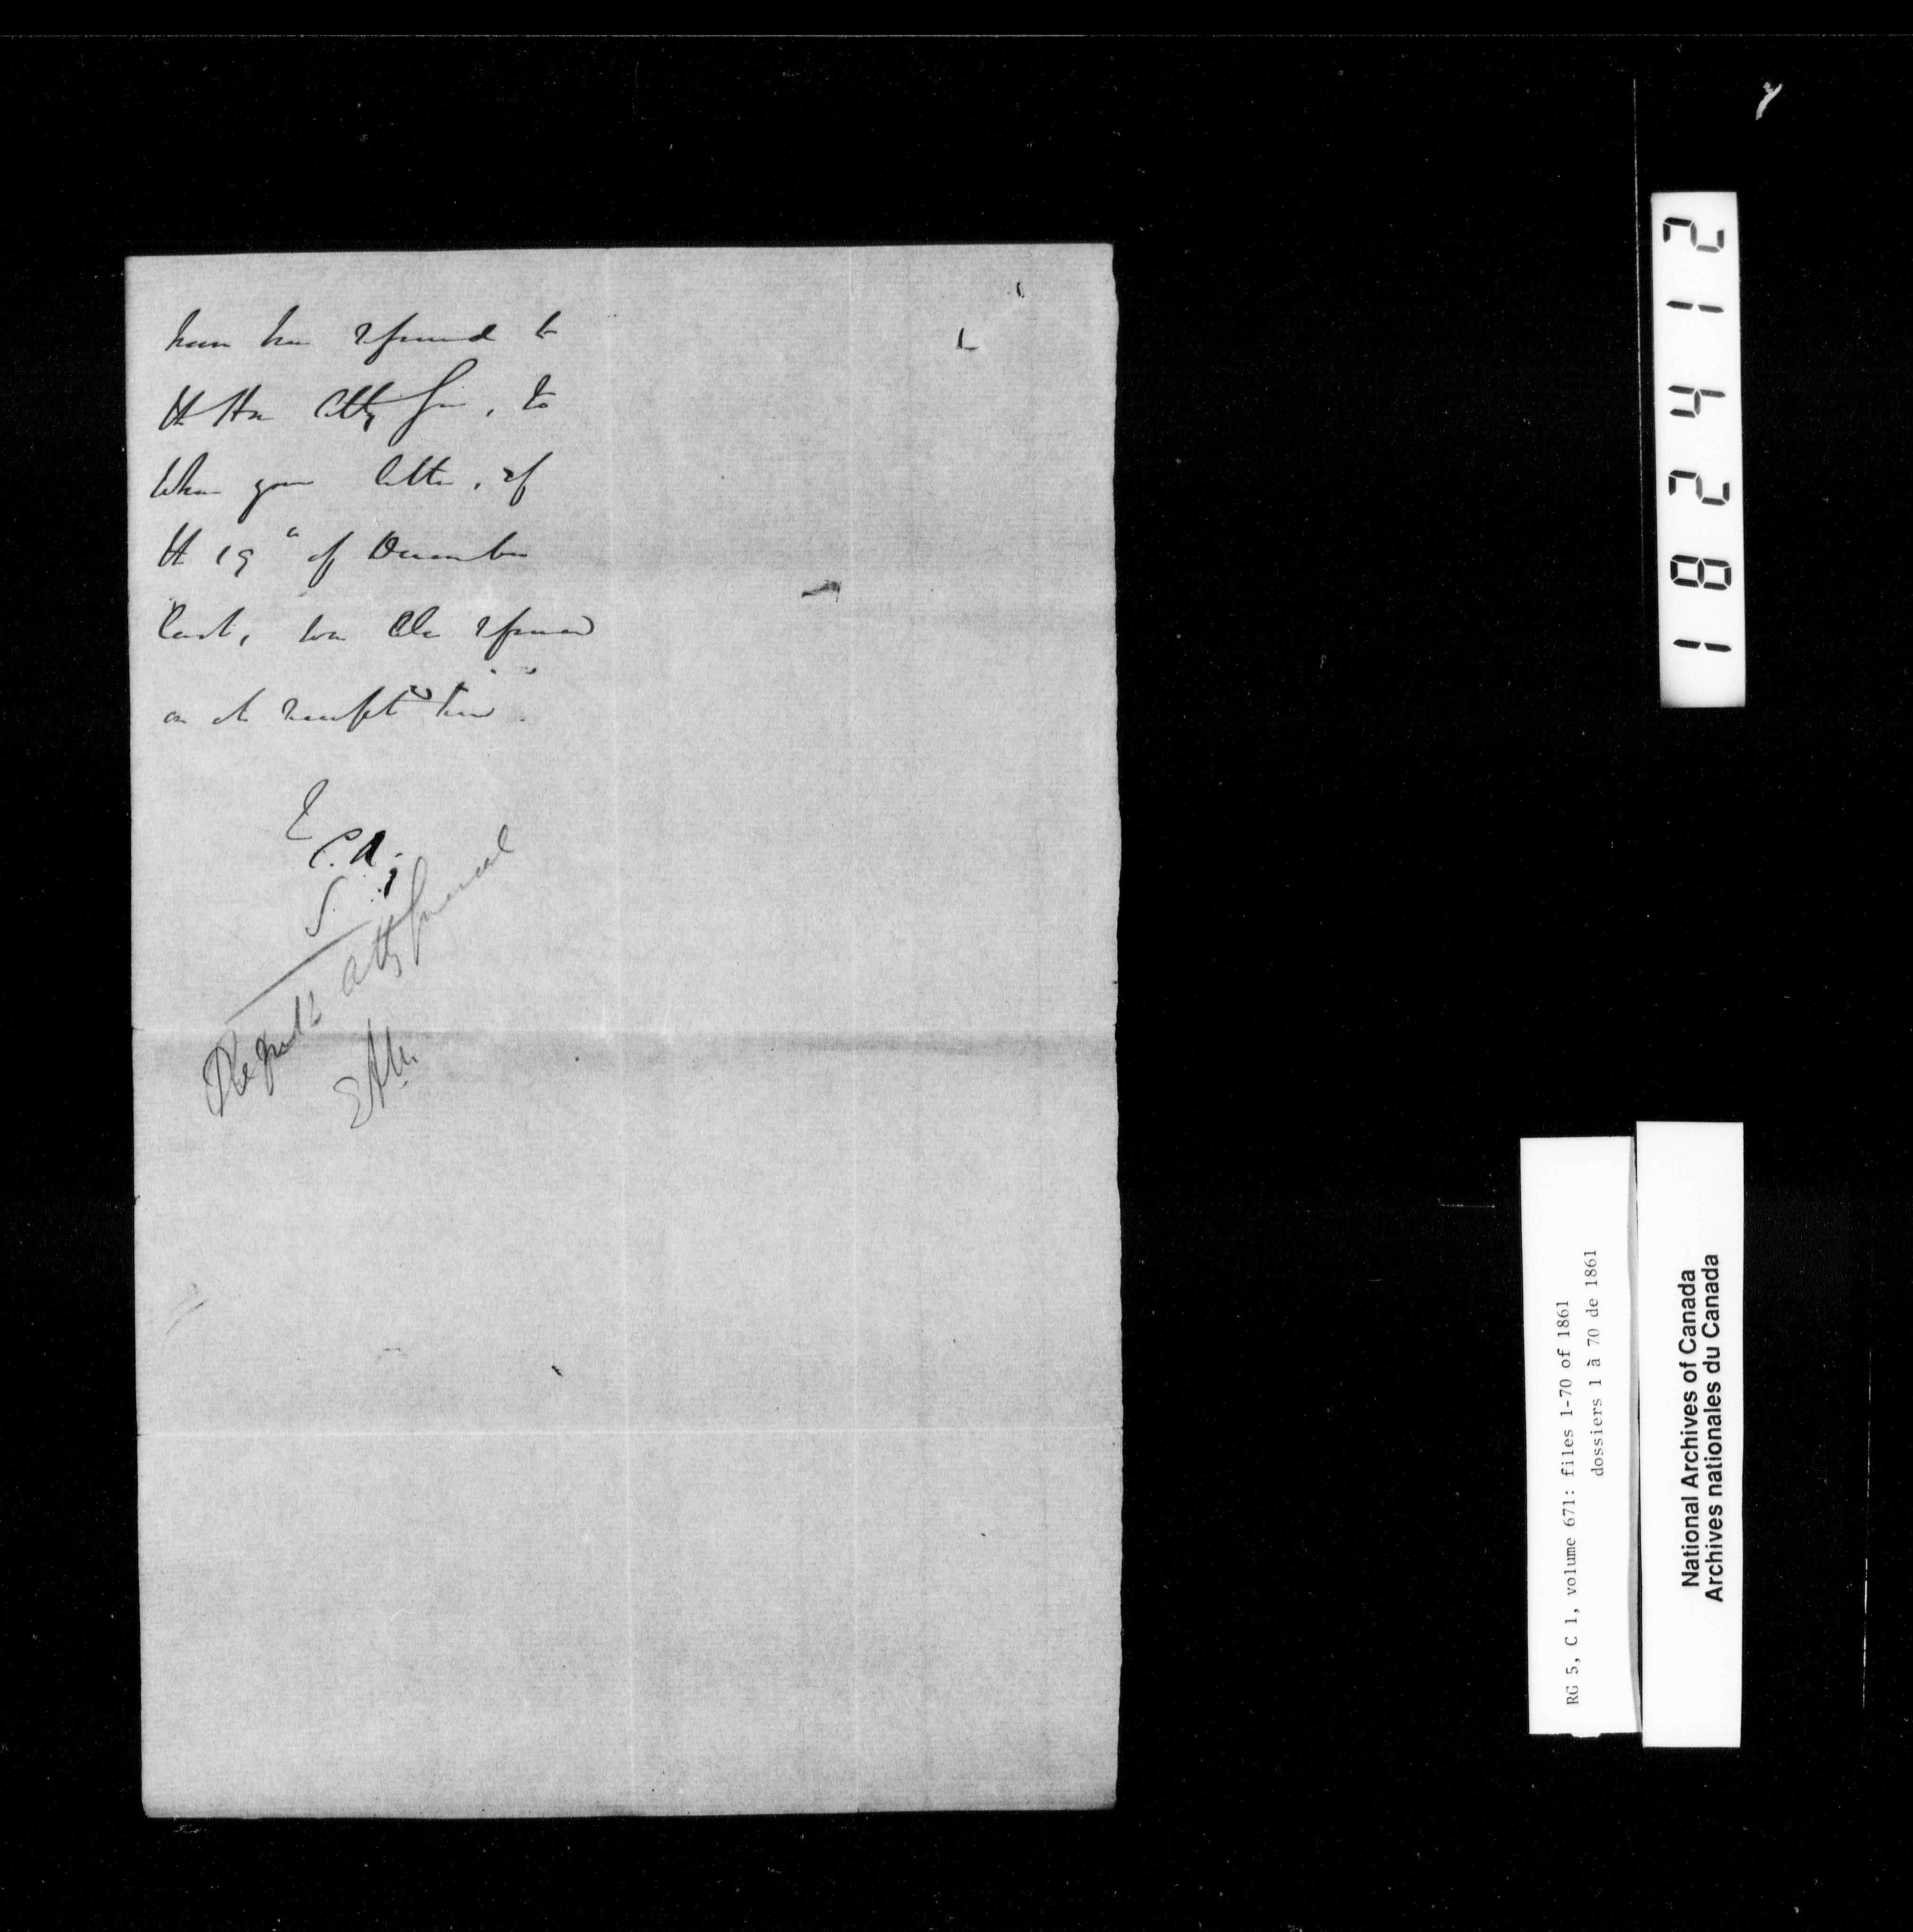 have been referred to
the Hon Atty Gen, to
whom your letter, of
the 19" of December
last, was also referred
on its receipt here.
E
C. A.
S
Refer to Atty General
182412
RG 5, C 1, volume 671: files 1-70 of 1861
dossiers 1 à 70 de 1861
National Archives of Canada
Archives nationales du Canada